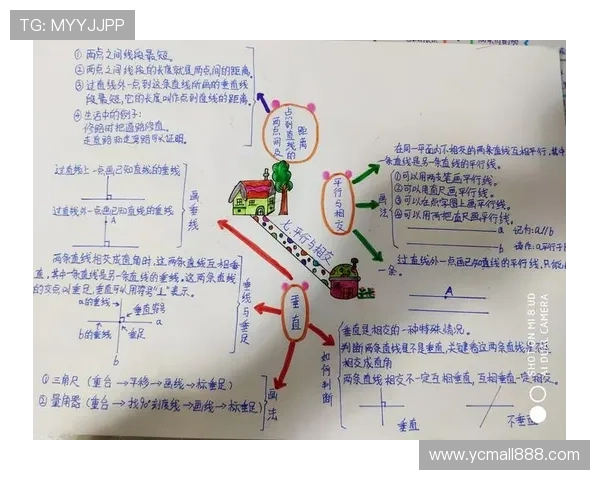 TG: MYYJJPP
① 两点之间线段最短。
② 两点之间线段的长度就是两点间的距离。
③ 过直线外一点到这条直线所画的垂直线
段最短，它的长度叫作点到直线的距离。
④ 生活中的例子：
修路时把道路修直。
走直路和走弯路可以证明。
两点间及
点到直线的
距离
过直线上一点画已知直线的垂线
过直线外一点画已知直线的垂线
画垂线
两条直线相交成直角时，这两条直线互相垂
直，其中一条直线是另一条直线的垂线。这两条直线
的交点叫垂足，垂直可以用符号"⊥"表示。
a的垂线
a
垂直符号
b的垂线
垂足
b
垂线与垂足
① 三角尺（重合→平移→画线→标垂足）
② 量角器（重合→找90°刻度线→画线→标垂足）
画法
七、平行与相交
平行与相交
垂直
在同一平面内不相交的两条直线互相平行，其中一
条直线是另一条直线的平行线。
画法
①可以用两支笔画平行线。
②可以用直尺画平行线。
③可以在点字图上画平行线。
④可以用两把直尺画平行线。
a 记为：a//b
b
过直线外一点画已知直线的平行线，只能
一条。
A
如何判断
垂直是相交的一种特殊情况。
判断两条直线是不是垂直，关键看这两条直线是不
相交成直角
两条直线相交不一定互相垂直，互相垂直一定相交。
垂直
不垂直
SHOT ON MI 8 UD
AI DUAL CAMERA
www.ycmall888.com